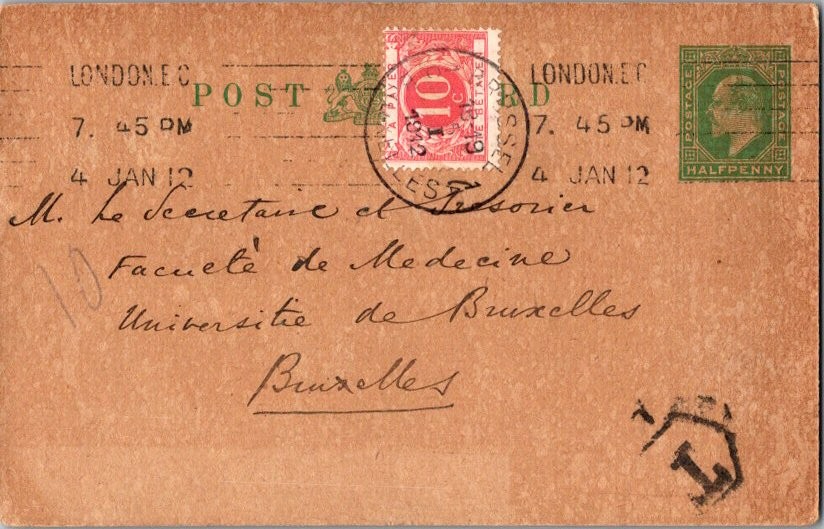 LONDON.E.C
7. 45 PM
4 JAN 12
POST CARD
LONDON.E.C
7. 45 PM
4 JAN 12
A PAYER
10
C
TE BETALEN
BRUSSEL
1912
POSTAGE
POSTAGE
HALFPENNY
M. Le Secretaire et Tresorier
Faculté de Medecine
Universitie de Bruxelles
Bruxelles
10
T